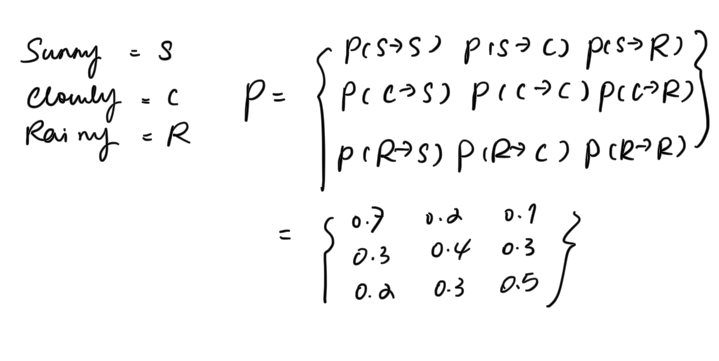 Sunny = S
Cloudy = C
Rainy = R
P = { P(S→S) P(S→C) P(S→R) }
P(C→S) P(C→C) P(C→R)
P(R→S) P(R→C) P(R→R)
= { 0.7 0.2 0.1 }
0.3 0.4 0.3
0.2 0.3 0.5